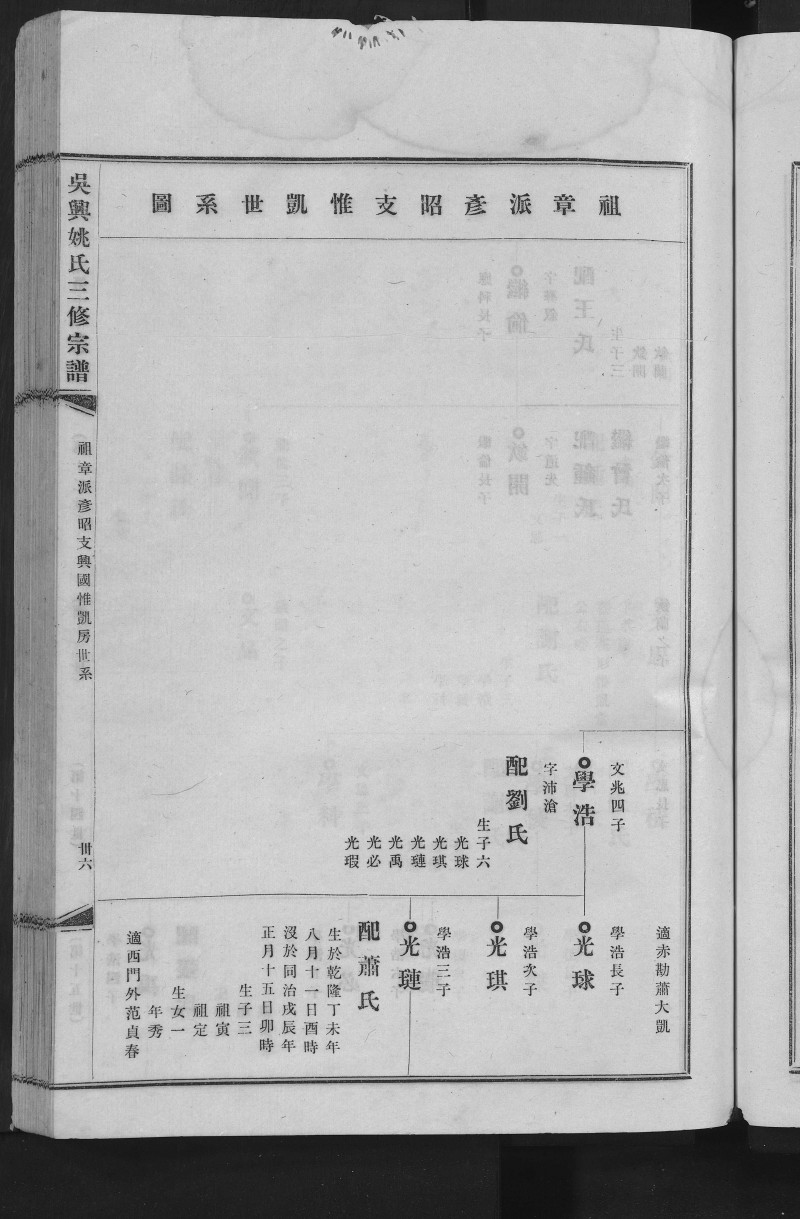 祖章派彥昭支惟凱世系圖
文兆四子
學浩
字沛滄
配劉氏
生子六
光球
光琪
光璉
光禹
光必
光瑕
適赤勘蕭大凱
學浩長子
光球
學浩次子
光琪
學浩三子
光璉
配蕭氏
生於乾隆丁未年
八月十一日酉時
沒於同治戊辰年
正月十五日卯時
生子三
祖寅
祖定
生女一
年秀
適西門外范貞春
吳興姚氏三修宗譜
祖章派彥昭支興國惟凱房世系
卅六